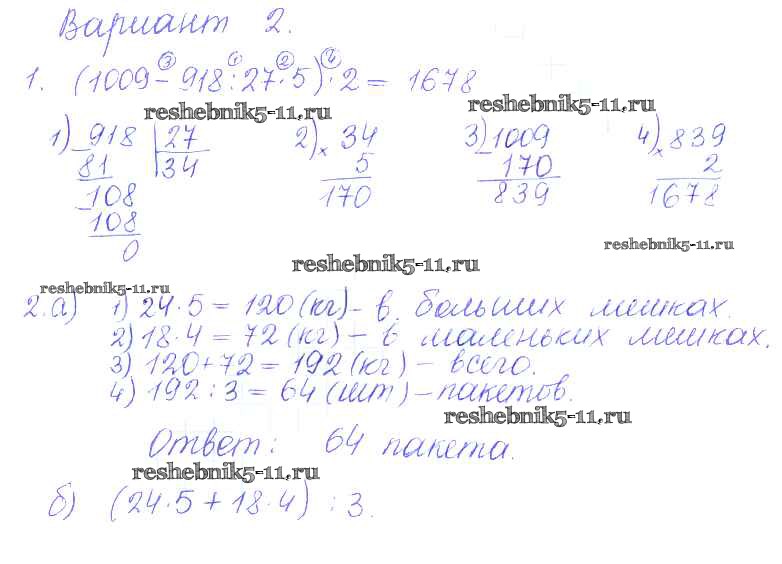 Вариант 2.
③ ① ② ④
1. (1009 - 918 : 27 · 5) · 2 = 1678
reshebnik5-11.ru reshebnik5-11.ru
1) 918 27 2) 34 3) 1009 4) 839
81 34 × 5 - 170 × 2
108 170 839 1678
108
0
reshebnik5-11.ru
reshebnik5-11.ru
reshebnik5-11.ru
2. а) 1) 24 · 5 = 120 (кг) - в больших мешках.
2) 18 · 4 = 72 (кг) - в маленьких мешках.
3) 120 + 72 = 192 (кг) - всего.
4) 192 : 3 = 64 (шт) - пакетов.
reshebnik5-11.ru
Ответ: 64 пакета.
reshebnik5-11.ru
б) (24 · 5 + 18 · 4) : 3.